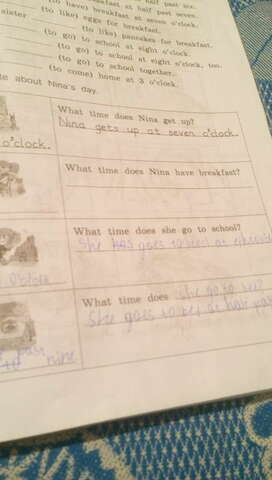 half past six.
(to have) breakfast at half past seven.
breakfast at seven o'clock.
sister (to like) eggs for breakfast.
(to like) pancakes for breakfast.
(to go) to school at eight o'clock.
(to go) to school at eight o'clock, too.
(to go) to school together.
(to come) home at 3 o'clock.
about Nina's day.
What time does Nina get up?
Nina gets up at seven o'clock.
o'clock.
What time does Nina have breakfast?
What time does she go to school?
She goes to school at
What time does she go to bed?
She goes to bed at half past
past
nine